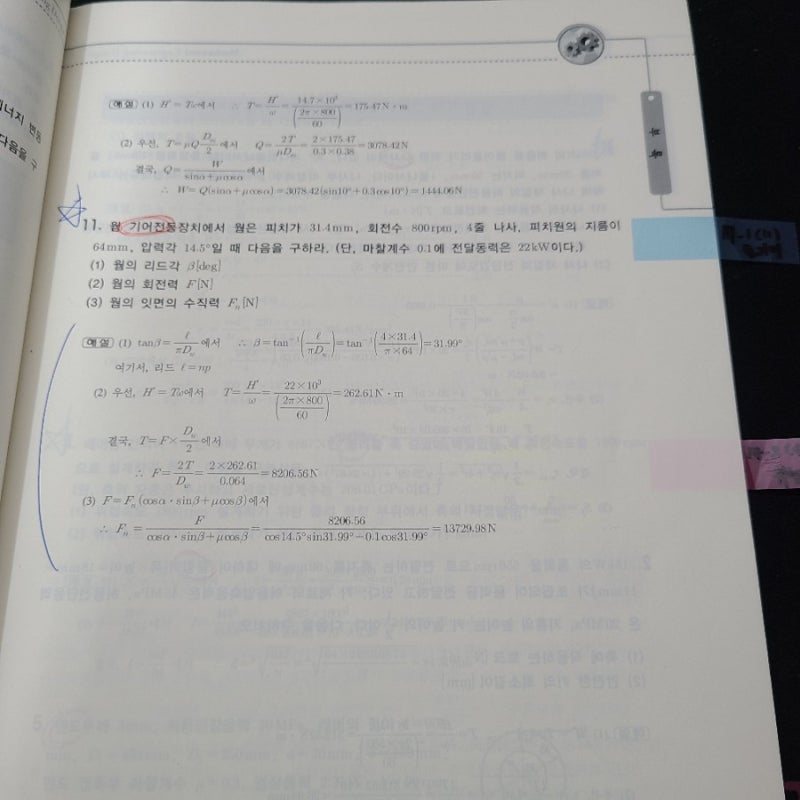 너지 변동
다음을 구
부록
해설 (1) H' = Tω에서 ∴ T = H'/ω = 14.7×10³/(2π×800/60) = 175.47N·m
(2) 우선, T = μQ D_w/2 에서 Q = 2T/μD_w = 2×175.47/0.3×0.38 = 3078.42N
결국, Q = W/sinα+μcosα 에서
∴ W = Q(sinα+μcosα) = 3078.42(sin10°+0.3cos10°) = 1444.06N
11. 웜 기어전동장치에서 웜은 피치가 31.4mm, 회전수 800rpm, 4줄 나사, 피치원의 지름이
64mm, 압력각 14.5°일 때 다음을 구하라. (단, 마찰계수 0.1에 전달동력은 22kW이다.)
(1) 웜의 리드각 β[deg]
(2) 웜의 회전력 F[N]
(3) 웜의 잇면의 수직력 Fₙ[N]
해설 (1) tanβ = ℓ/πD_w 에서 ∴ β = tan⁻¹(ℓ/πD_w) = tan⁻¹(4×31.4/π×64) = 31.99°
여기서, 리드 ℓ = np
(2) 우선, H' = Tω에서 T = H'/ω = 22×10³/(2π×800/60) = 262.61N·m
결국, T = F× D_w/2 에서
∴ F = 2T/D_w = 2×262.61/0.064 = 8206.56N
(3) F = Fₙ(cosα·sinβ+μcosβ)에서
∴ Fₙ = F/cosα·sinβ+μcosβ = 8206.56/cos14.5°sin31.99°−0.1cos31.99° = 13729.98N